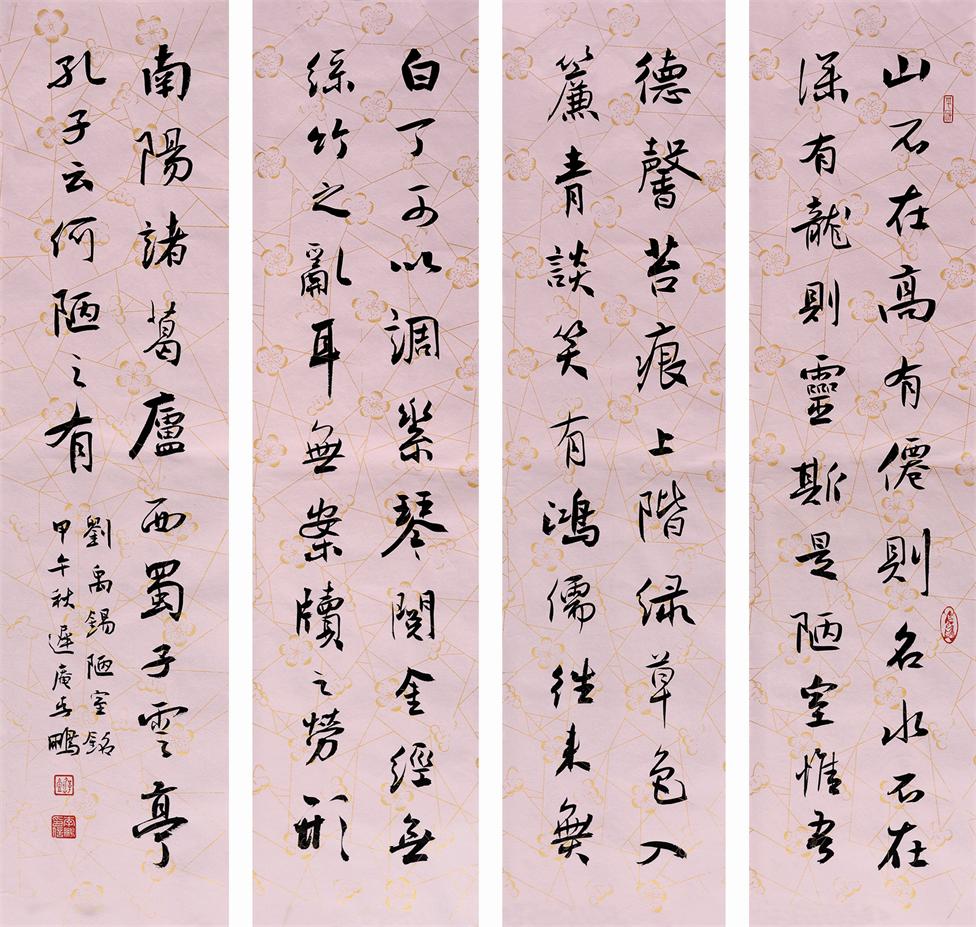 山不在高有僊則名水不在
深有龍則靈斯是陋室惟吾
德馨苔痕上階緑草色入
簾青談笑有鴻儒往来無
白丁可以調素琴閲金經無
絲竹之亂耳無案牘之勞形
南陽諸葛廬西蜀子雲亭
孔子云何陋之有
劉禹錫陋室銘
甲午秋遲庵李鵬